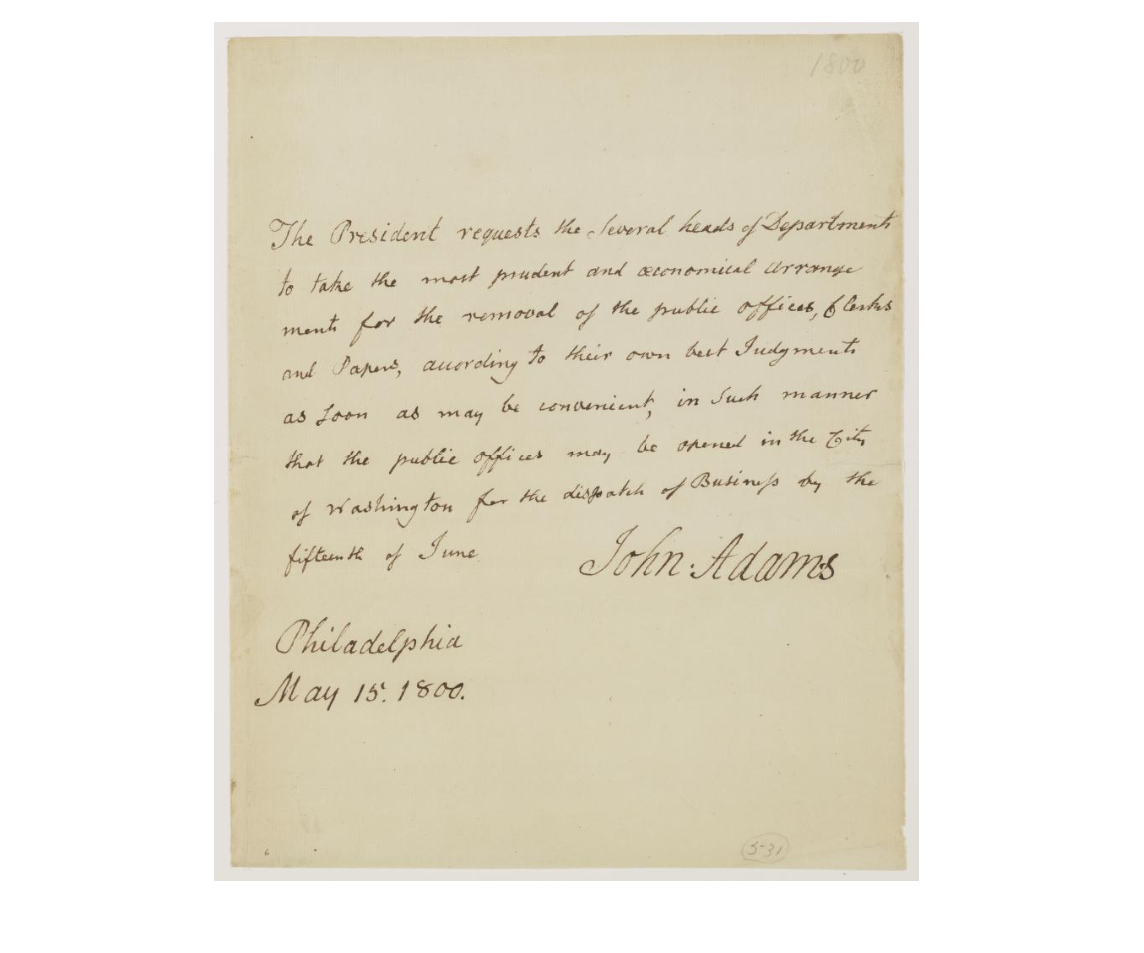 1800
The President requests the Several heads of Departments
to take the most prudent and œconomical arrange
ments for the removal of the public offices, Clerks
and Papers, according to their own best Judgments
as Soon as may be convenient, in Such manner
that the public offices may be opened in the City
of Washington for the dispatch of Business by the
fifteenth of June
John Adams
Philadelphia
May 15. 1800.
5-31